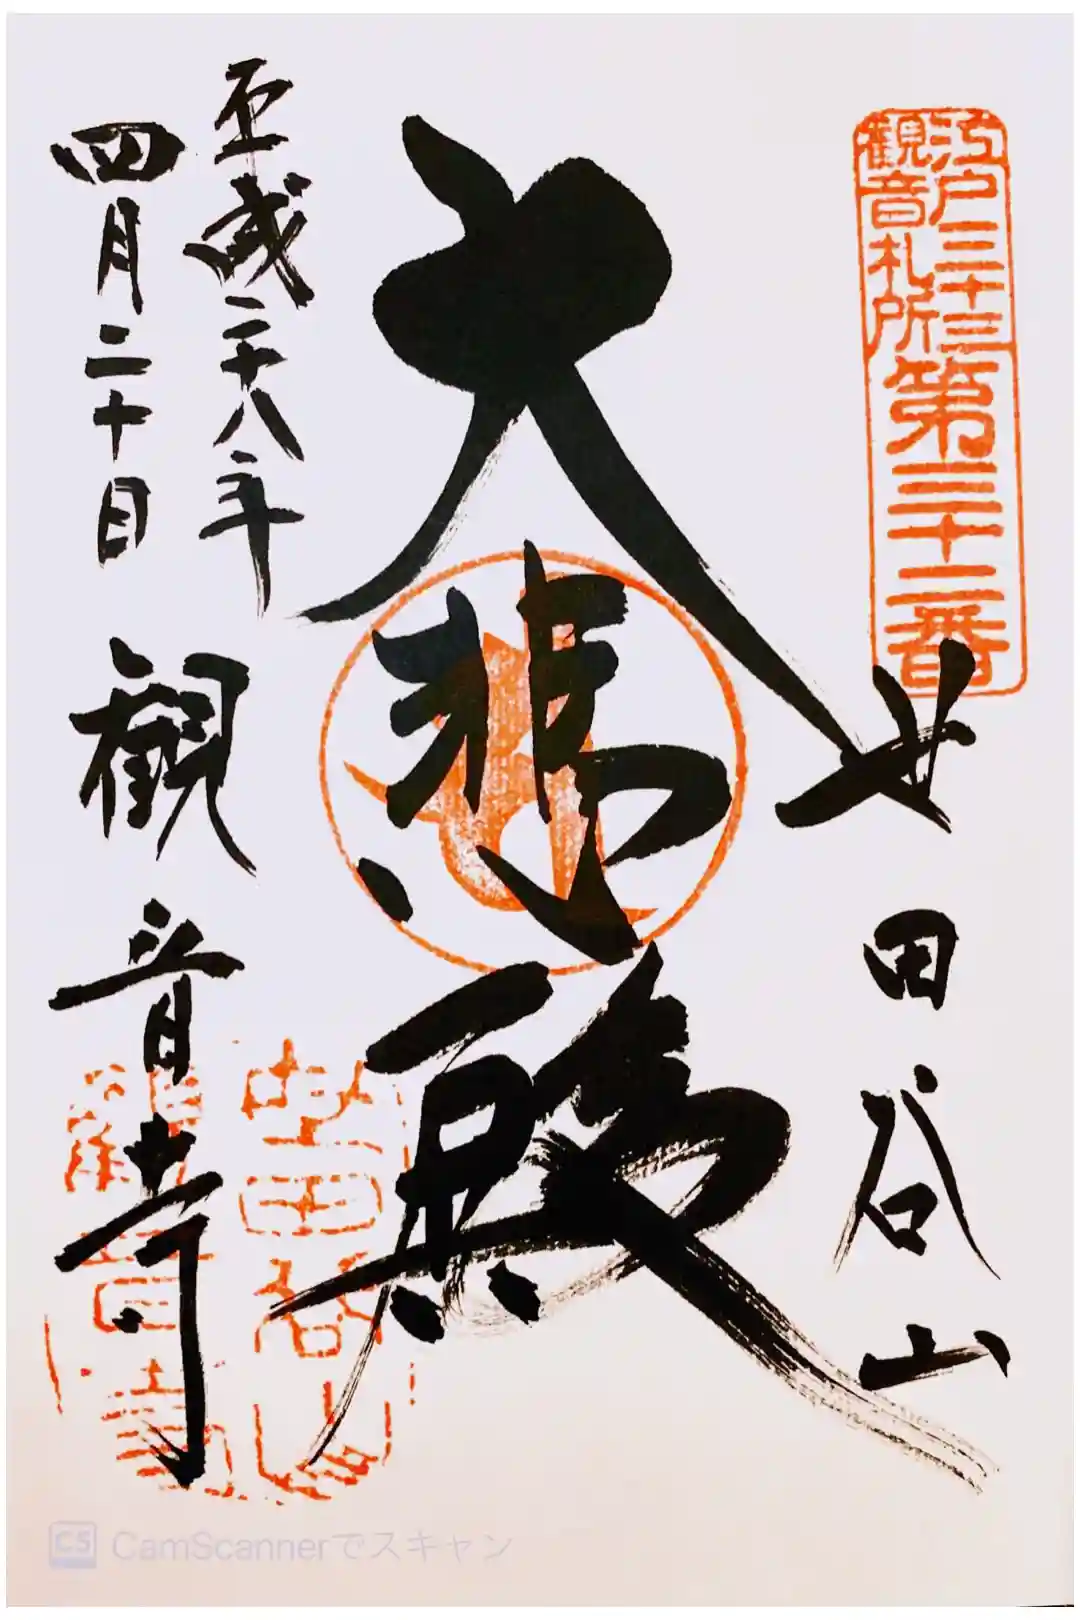 江戸三十三
観音札所
第三十二番
世田谷山
大悲殿
平成二十八年
四月二十日
観音寺
世田谷山
観音寺
CamScannerでスキャン